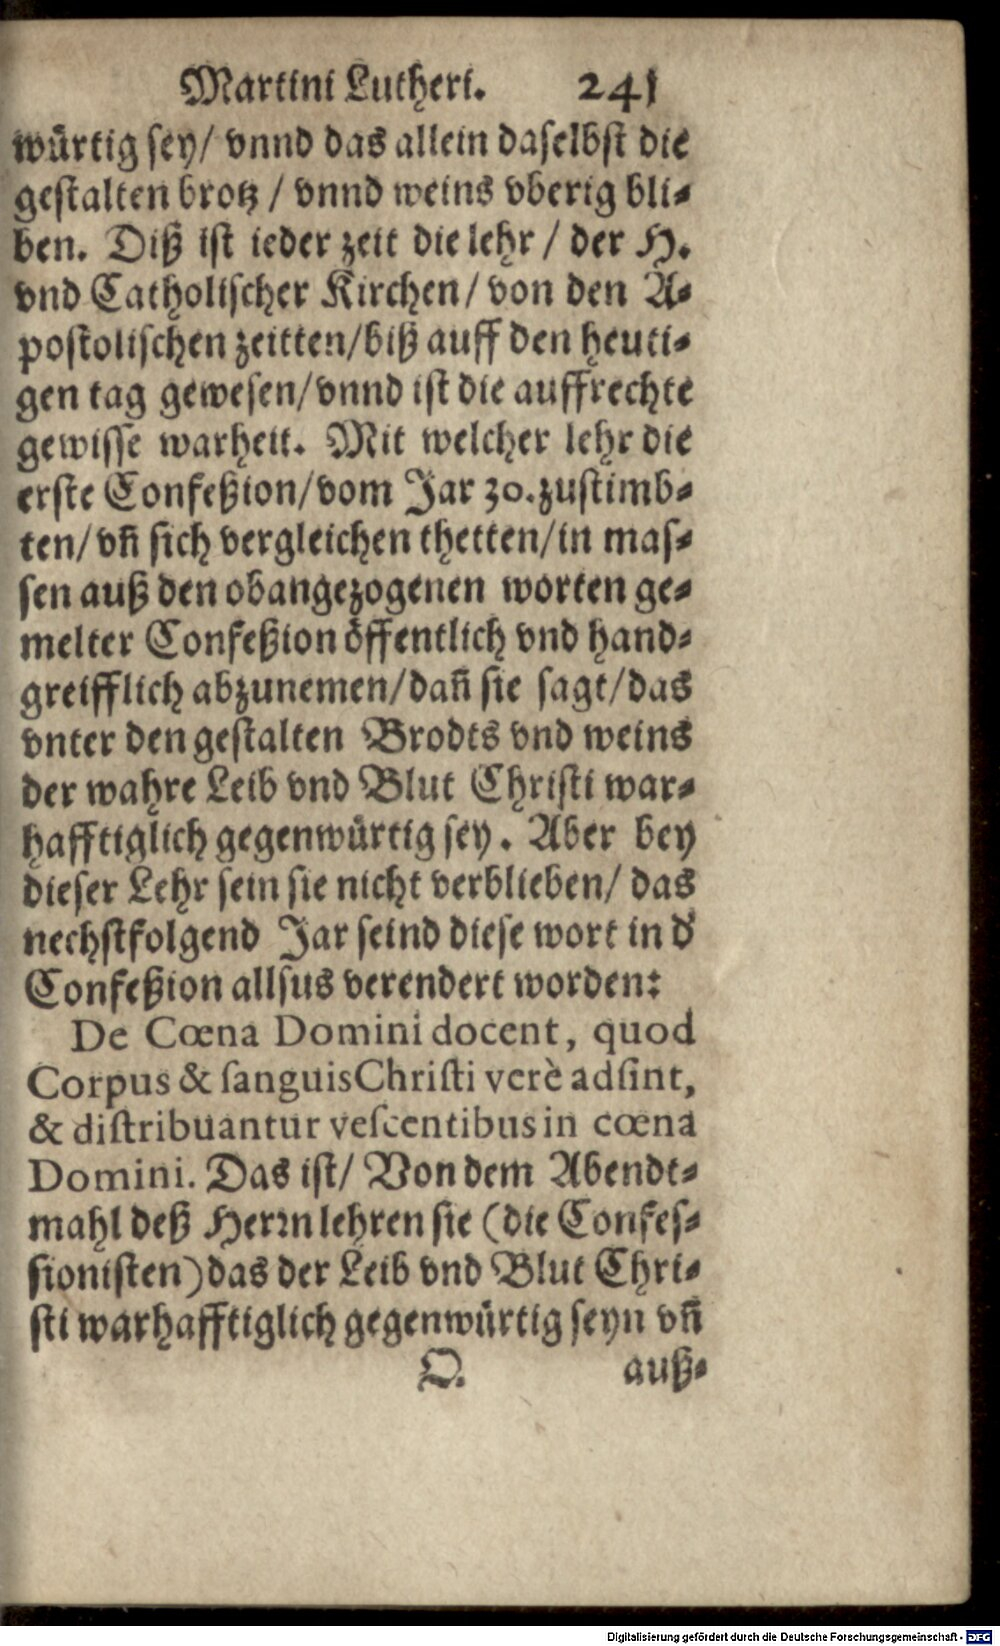 Martini Lutheri. 241
würtig sey/ vnnd das allein daselbst die
gestalten brotz / vnnd weins vberig bli-
ben. Diß ist ieder zeit die lehr / der H.
vnd Catholischer Kirchen/ von den A-
postolischen zeitten/biß auff den heuti-
gen tag gewesen/vnnd ist die auffrechte
gewisse warheit. Mit welcher lehr die
erste Confeßion/vom Jar 30. zustimb-
ten/ vñ sich vergleichen thetten/in mas-
sen auß den obangezogenen worten ge-
melter Confeßion öffentlich vnd hand-
greifflich abzunemen/dañ sie sagt/das
vnter den gestalten Brodts vnd weins
der wahre Leib vnd Blut Christi war-
hafftiglich gegenwürtig sey. Aber bey
dieser Lehr sein sie nicht verblieben/ das
nechstfolgend Jar seind diese wort in d'
Confeßion allsus verendert worden:
De Cœna Domini docent, quod
Corpus & ſanguis Chriſti verè adſint,
& diſtribuantur veſcentibus in cœna
Domini. Das ist/ Von dem Abendt-
mahl deß Herrn lehren sie (die Confes-
sionisten) das der Leib vnd Blut Chri-
sti warhafftiglich gegenwürtig seyn vñ
Q. auß-
Digitalisierung gefördert durch die Deutsche Forschungsgemeinschaft - DFG